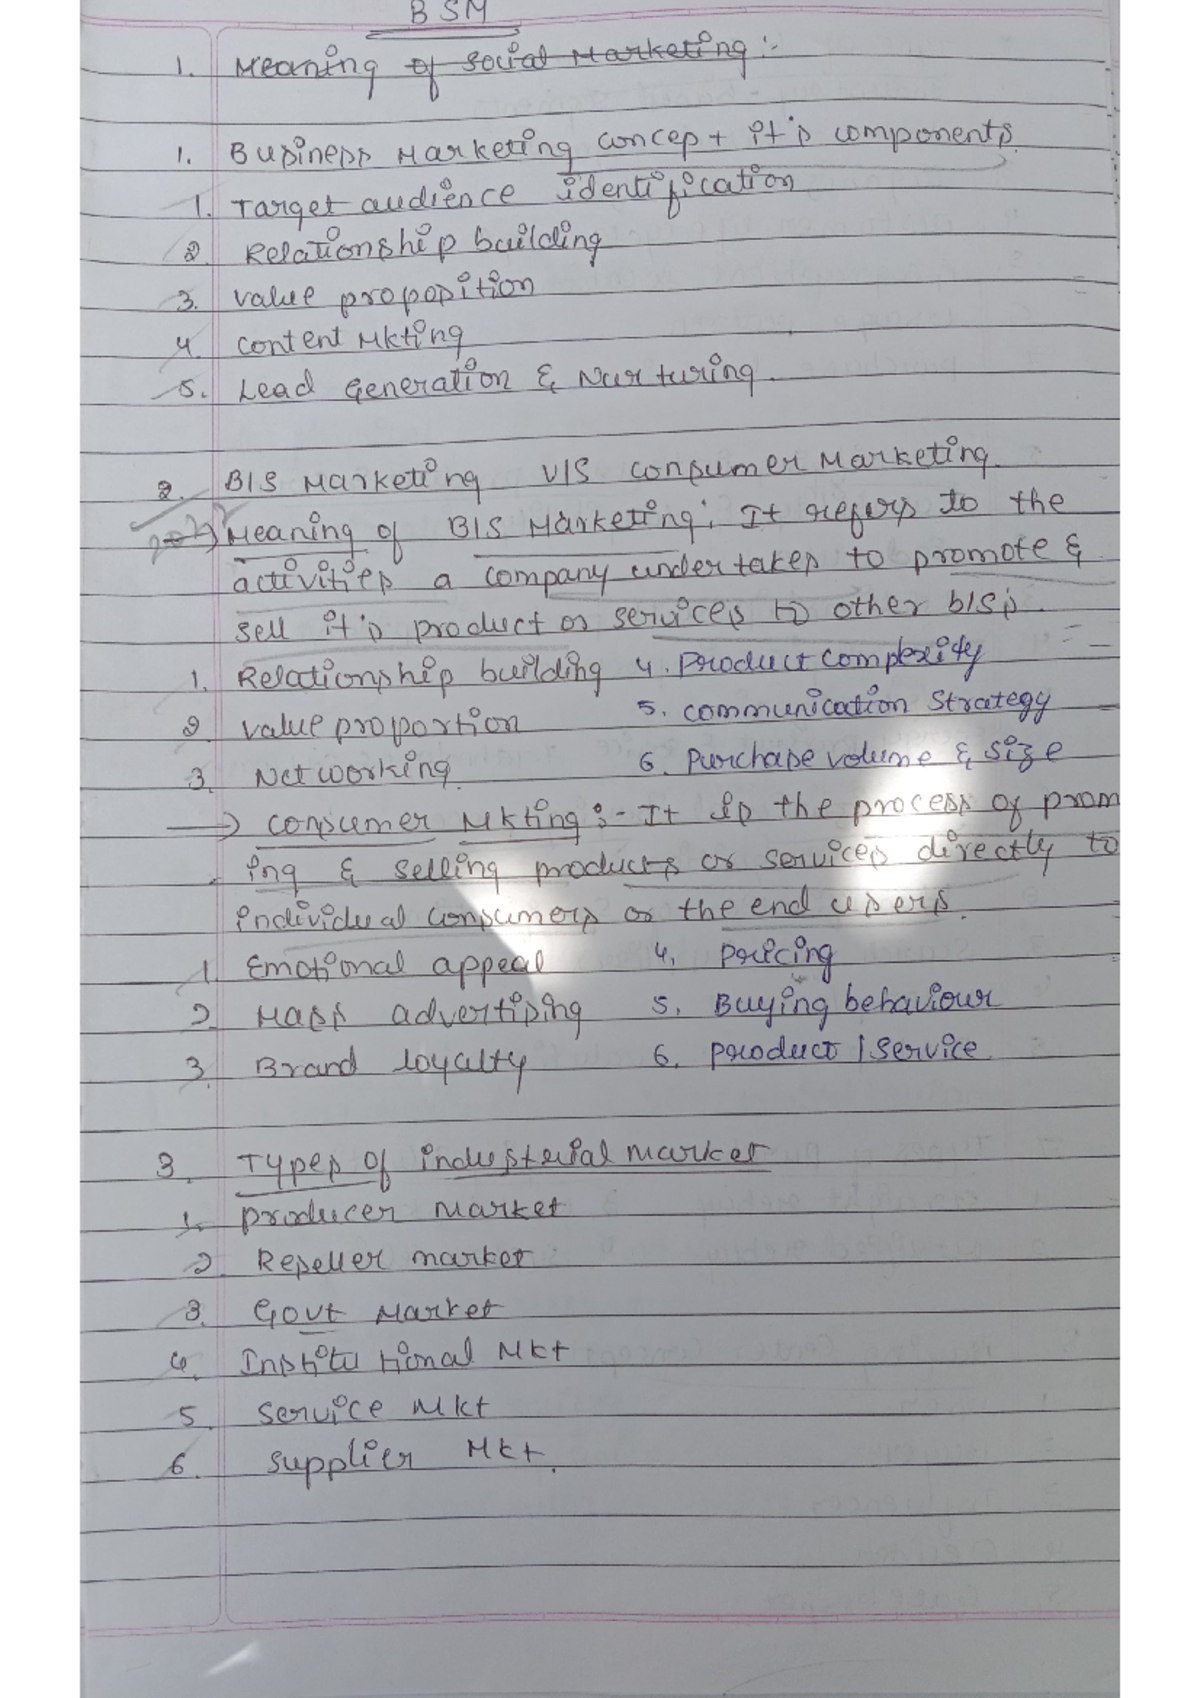 BSM
1. Meaning of Social Marketing :-
1. Business Marketing concept it's components.
1. Target audience identification
2. Relationship building
3. value proposition
4. content Mkting
5. Lead Generation & Nurturing.
2. B/S Marketing V/S Consumer Marketing.
Meaning of B/S Marketing: It refers to the
activities a company undertakes to promote &
sell it's product or services to other b/s's.
1. Relationship building 4. Product complexity
2. value proportion 5. communication Strategy
3. Networking. 6. Purchase volume & Size
→ Consumer Mkting :- It is the process of prom
ing & selling products or services directly to
individual consumers or the end users.
1. Emotional appeal 4. Pricing
2. Mass advertising 5. Buying behaviour
3. Brand loyalty 6. Product / Service
3. Types of industerial market
1. Producer Market
2. Reseller market
3. Govt Market
4. Institutional Mkt
5. Service Mkt
6. Supplier Mkt.